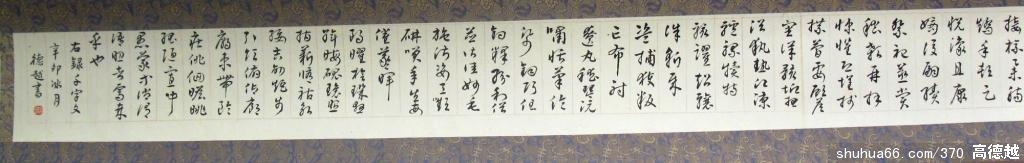 接杯舉觴
矯手頓足
悅豫且康
嫡後嗣續
祭祀蒸嘗
稽顙再拜
悚懼恐惶牋
牒簡要顧答
審詳骸垢想浴
執熱願涼
驢騾犢特
駭躍超驤
誅斬賊
盜捕獲叛
亡布射
遼丸嵇琴阮
嘯恬筆倫
紙鈞巧任
釣釋紛利俗
並皆佳妙毛
施淑姿工顰
妍笑年矢每
催羲暉
朗曜璇璣懸斡
晦魄環照
指薪修祜永
綏吉劭矩步
引領俯仰廊
廟束帶矜
莊徘徊瞻眺
孤陋寡聞
愚蒙等誚
謂語助者焉哉
乎也
右錄千字文
辛卯冰月
德越書
shuhua66.com/370 高德越